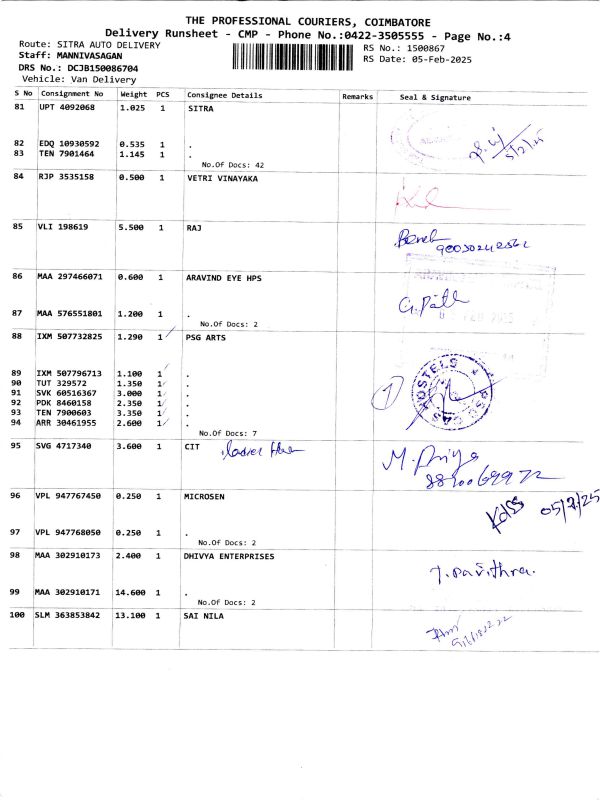 THE PROFESSIONAL COURIERS, COIMBATORE
Delivery Runsheet - CMP - Phone No.:0422-3505555 - Page No.:4
Route: SITRA AUTO DELIVERY
RS No.: 1500867
Staff: MANNIVASAGAN
RS Date: 05-Feb-2025
DRS No.: DCJB150086704
Vehicle: Van Delivery
S No Consignment No Weight PCS Consignee Details Remarks Seal & Signature
81 UPT 4092068 1.025 1 SITRA
5/2/25
82 EDQ 10930592 0.535 1 .
83 TEN 7901464 1.145 1 .
No.Of Docs: 42
84 RJP 3535158 0.500 1 VETRI VINAYAKA
85 VLI 198619 5.500 1 RAJ
86 MAA 297466071 0.600 1 ARAVIND EYE HPS
87 MAA 576551801 1.200 1 .
No.Of Docs: 2
88 IXM 507732825 1.290 1 PSG ARTS
89 IXM 507796713 1.100 1 .
90 TUT 329572 1.350 1 .
91 SVK 60516367 3.000 1 .
92 PDK 8460158 2.350 1 .
93 TEN 7900603 3.350 1 .
94 ARR 30461955 2.600 1 .
No.Of Docs: 7
1
HOSTELS
95 SVG 4717340 3.600 1 CIT
M. Priya
96 VPL 947767450 0.250 1 MICROSEN
05/2/25
97 VPL 947768050 0.250 1 .
No.Of Docs: 2
98 MAA 302910173 2.400 1 DHIVYA ENTERPRISES
J. Pavithra.
99 MAA 302910171 14.600 1 .
No.Of Docs: 2
100 SLM 363853842 13.100 1 SAI NILA